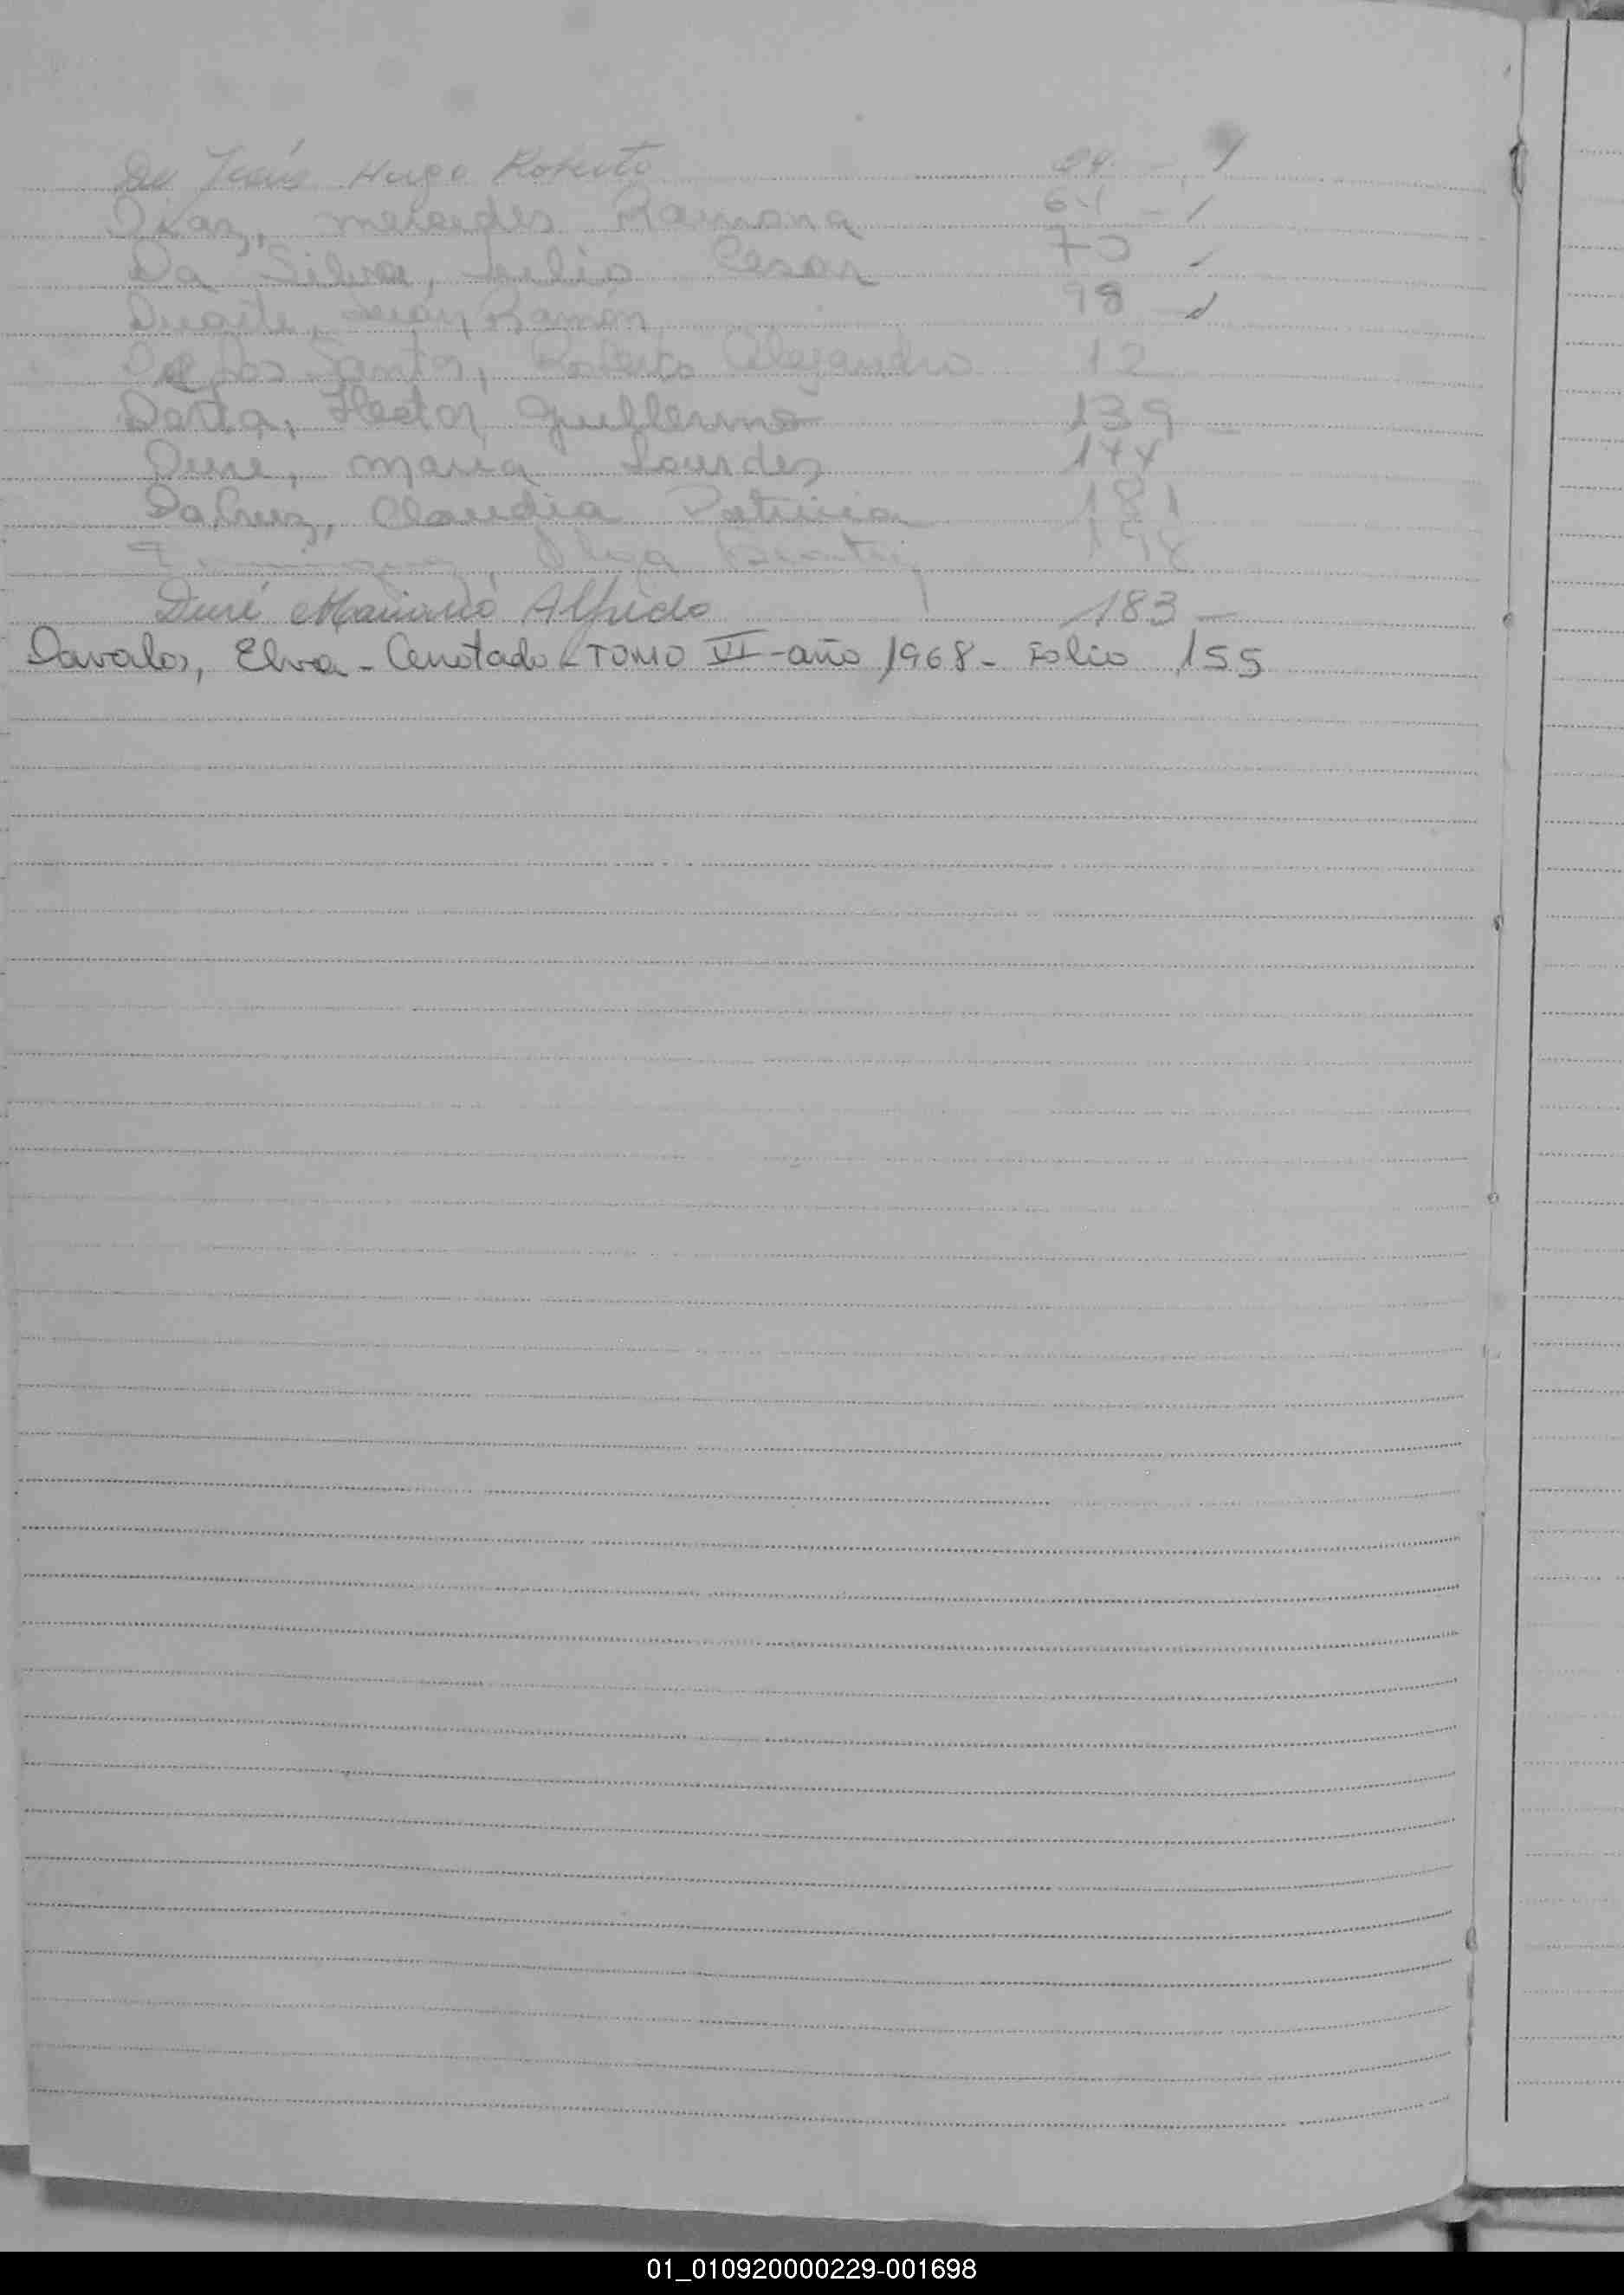 De Jesús Hugo Roberto 24 -
Diaz, mercedes Ramona 61 -
Da Silva, Julio Cesar 70
Duarte, Ramón 98 -
Santos, Roberto Alejandro 12
Hector Guillermo 139 -
Dure, maria Lourdes 144
DaCruz, Claudia Patricia 181
Olga Beatriz
Duré Mariano Alfredo 183 -
Davalos, Elva - Anotado - TOMO VI - año 1968 - Folio 155
01_010920000229-001698